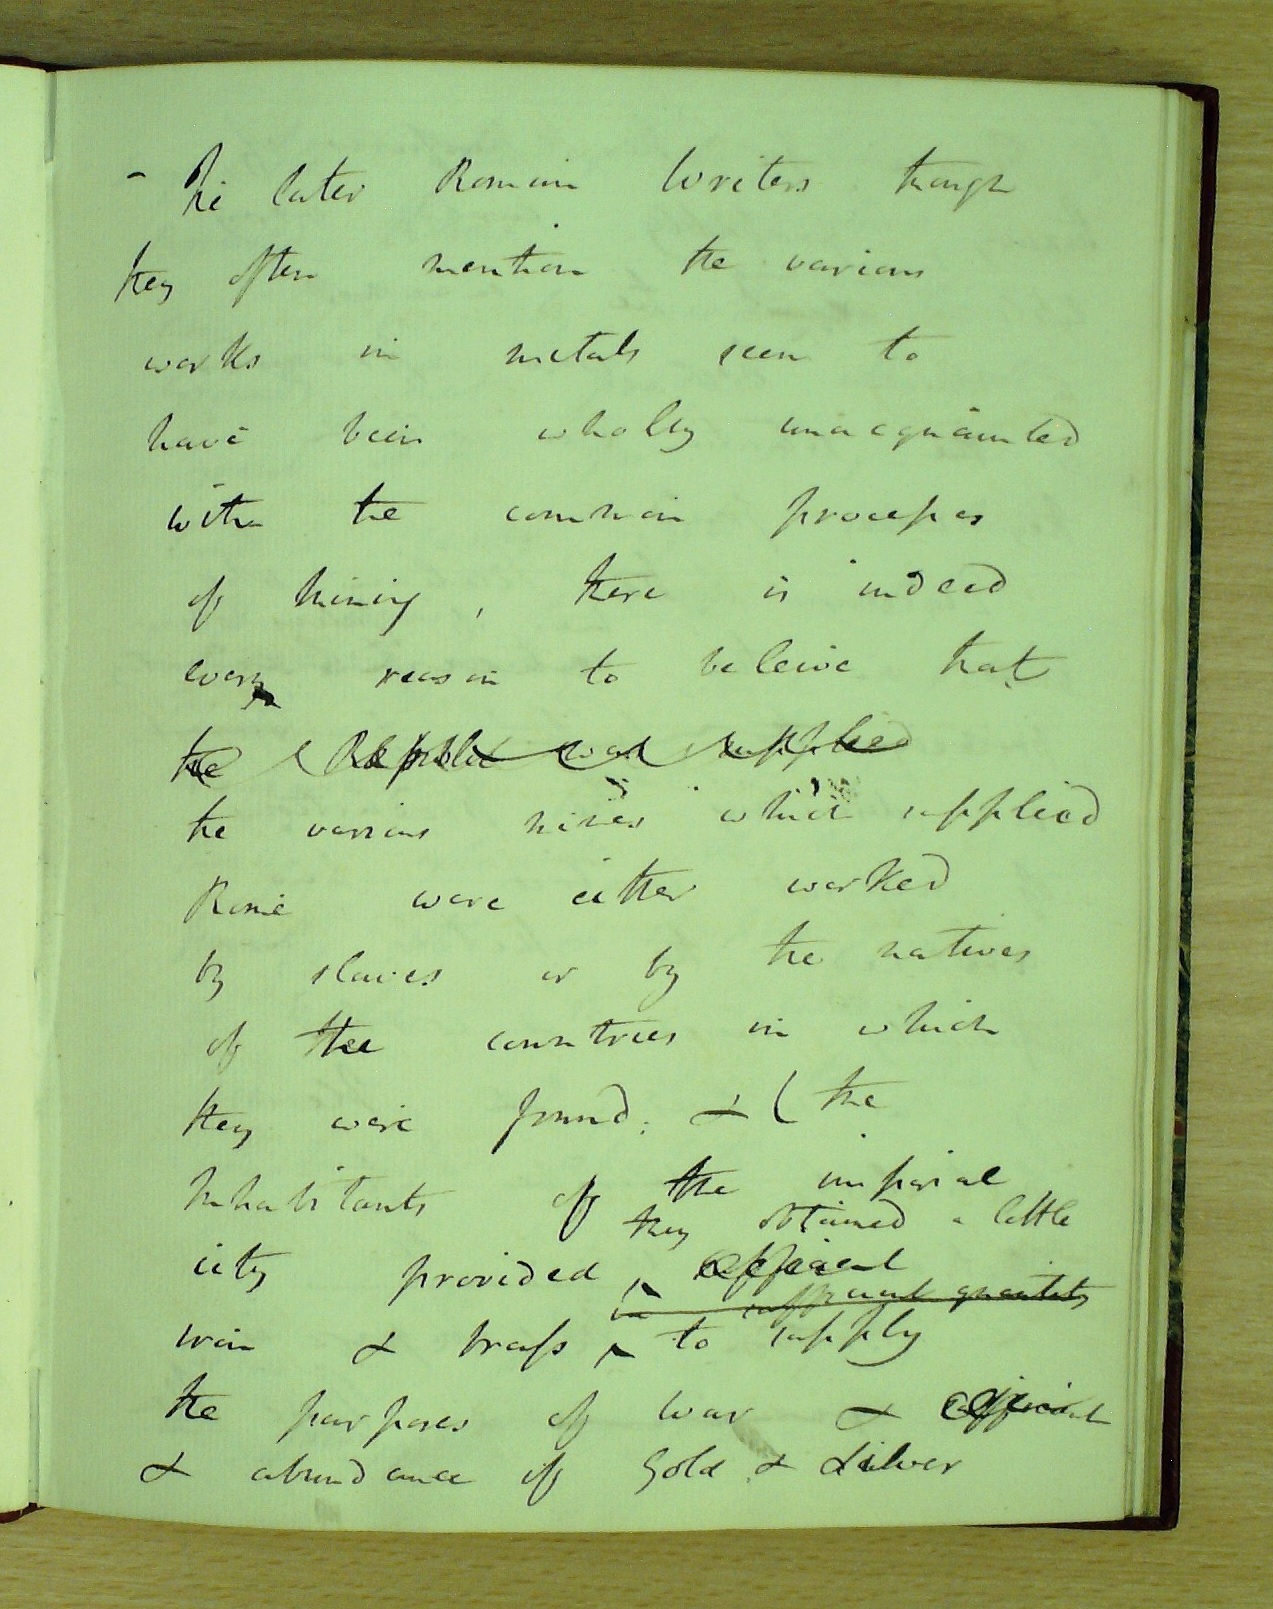 - The later Roman Writers though
they often mention the various
works in metals seem to
have been wholly unacquainted
with the common processes
of Mining, there is indeed
every reason to beleive that
the Republic was supplied
the various mines which supplied
Rome were either worked
by slaves or by the natives
of the countries in which
they were found; & ( the
Inhabitants of the imperial
they obtained a little
city provided
sufficient quantity
iron & brass to supply
the purposes of war & sufficient
& abundance of Gold & Silver